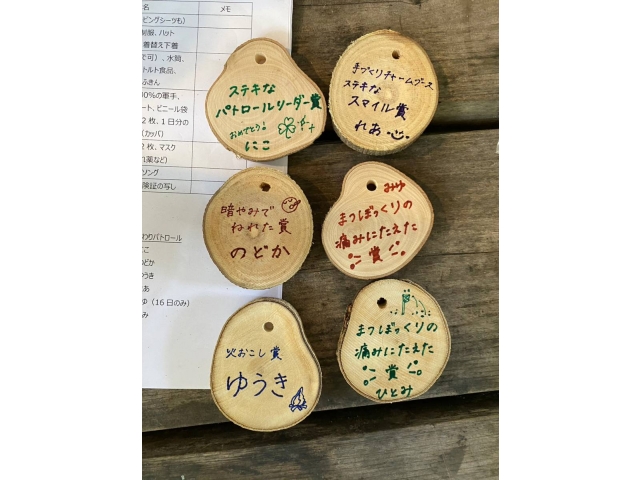 名 メモ
ピングシーツも)
制服、ハット
着替え下着
で可)、水筒、
トルト食品、
ふきん
00%の軍手、
ート、ビニール袋
2 枚、1 日分の
(カッパ)
2 枚、マスク
れ薬など)
ソング
険証の写し
わりパトロール
こ
のどか
うき
あ
ゆ (16 日のみ)
み
ステキな
パトロールリーダー賞
おめでとう!
にこ
手づくりチャームブース
ステキな
スマイル賞
れあ
暗やみで
ねれた賞
のどか
みゆ
まつぼっくりの
痛みにたえた
賞
火おこし賞
ゆうき
まつぼっくりの
痛みにたえた
賞
ひとみ